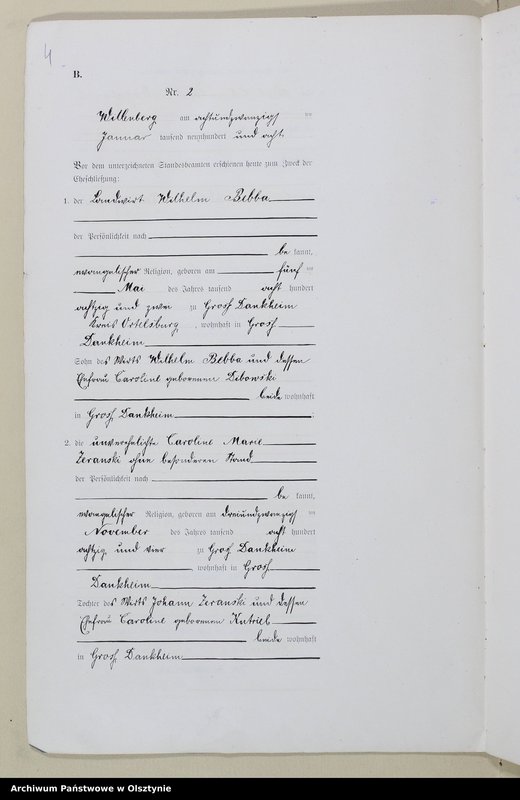 4
B.
Nr. 2
Willenberg am achtundzwanzigsten
Januar tausend neunhundert und acht.
Vor dem unterzeichneten Standesbeamten erschienen heute zum Zweck der
Eheschließung:
1. der Landwirt Wilhelm Bebba
der Persönlichkeit nach
be kannt,
evangelischer Religion, geboren am fünften
Mai des Jahres tausend acht hundert
achtzig und zwei zu Groß Dankheim
Kreis Ortelsburg, wohnhaft in Groß
Dankheim
Sohn des Wirts Wilhelm Bebba und dessen
Ehefrau Caroline geborenen Dibowski
beide wohnhaft
in Groß Dankheim
2. die unverehelichte Caroline Marie
Zeranski ohne besonderen Stand
der Persönlichkeit nach
be kannt,
evangelischer Religion, geboren am dreiundzwanzigsten
November des Jahres tausend acht hundert
achtzig und vier zu Groß Dankheim
, wohnhaft in Groß
Dankheim
Tochter des Wirts Johann Zeranski und dessen
Ehefrau Caroline geborenen Kutrieb
beide wohnhaft
in Groß Dankheim
Archiwum Państwowe w Olsztynie